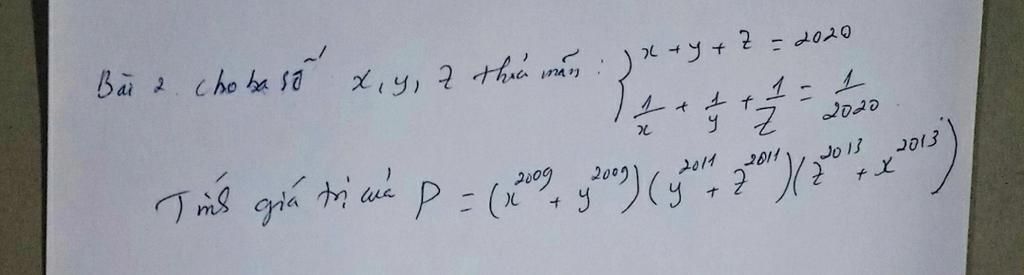 Bài 2. Cho ba số x, y, z thoả mãn: { x + y + z = 2020
1/x + 1/y + 1/z = 1/2020
Tính giá trị của P = (x^2009 + y^2009)(y^2011 + z^2011)(z^2013 + x^2013)